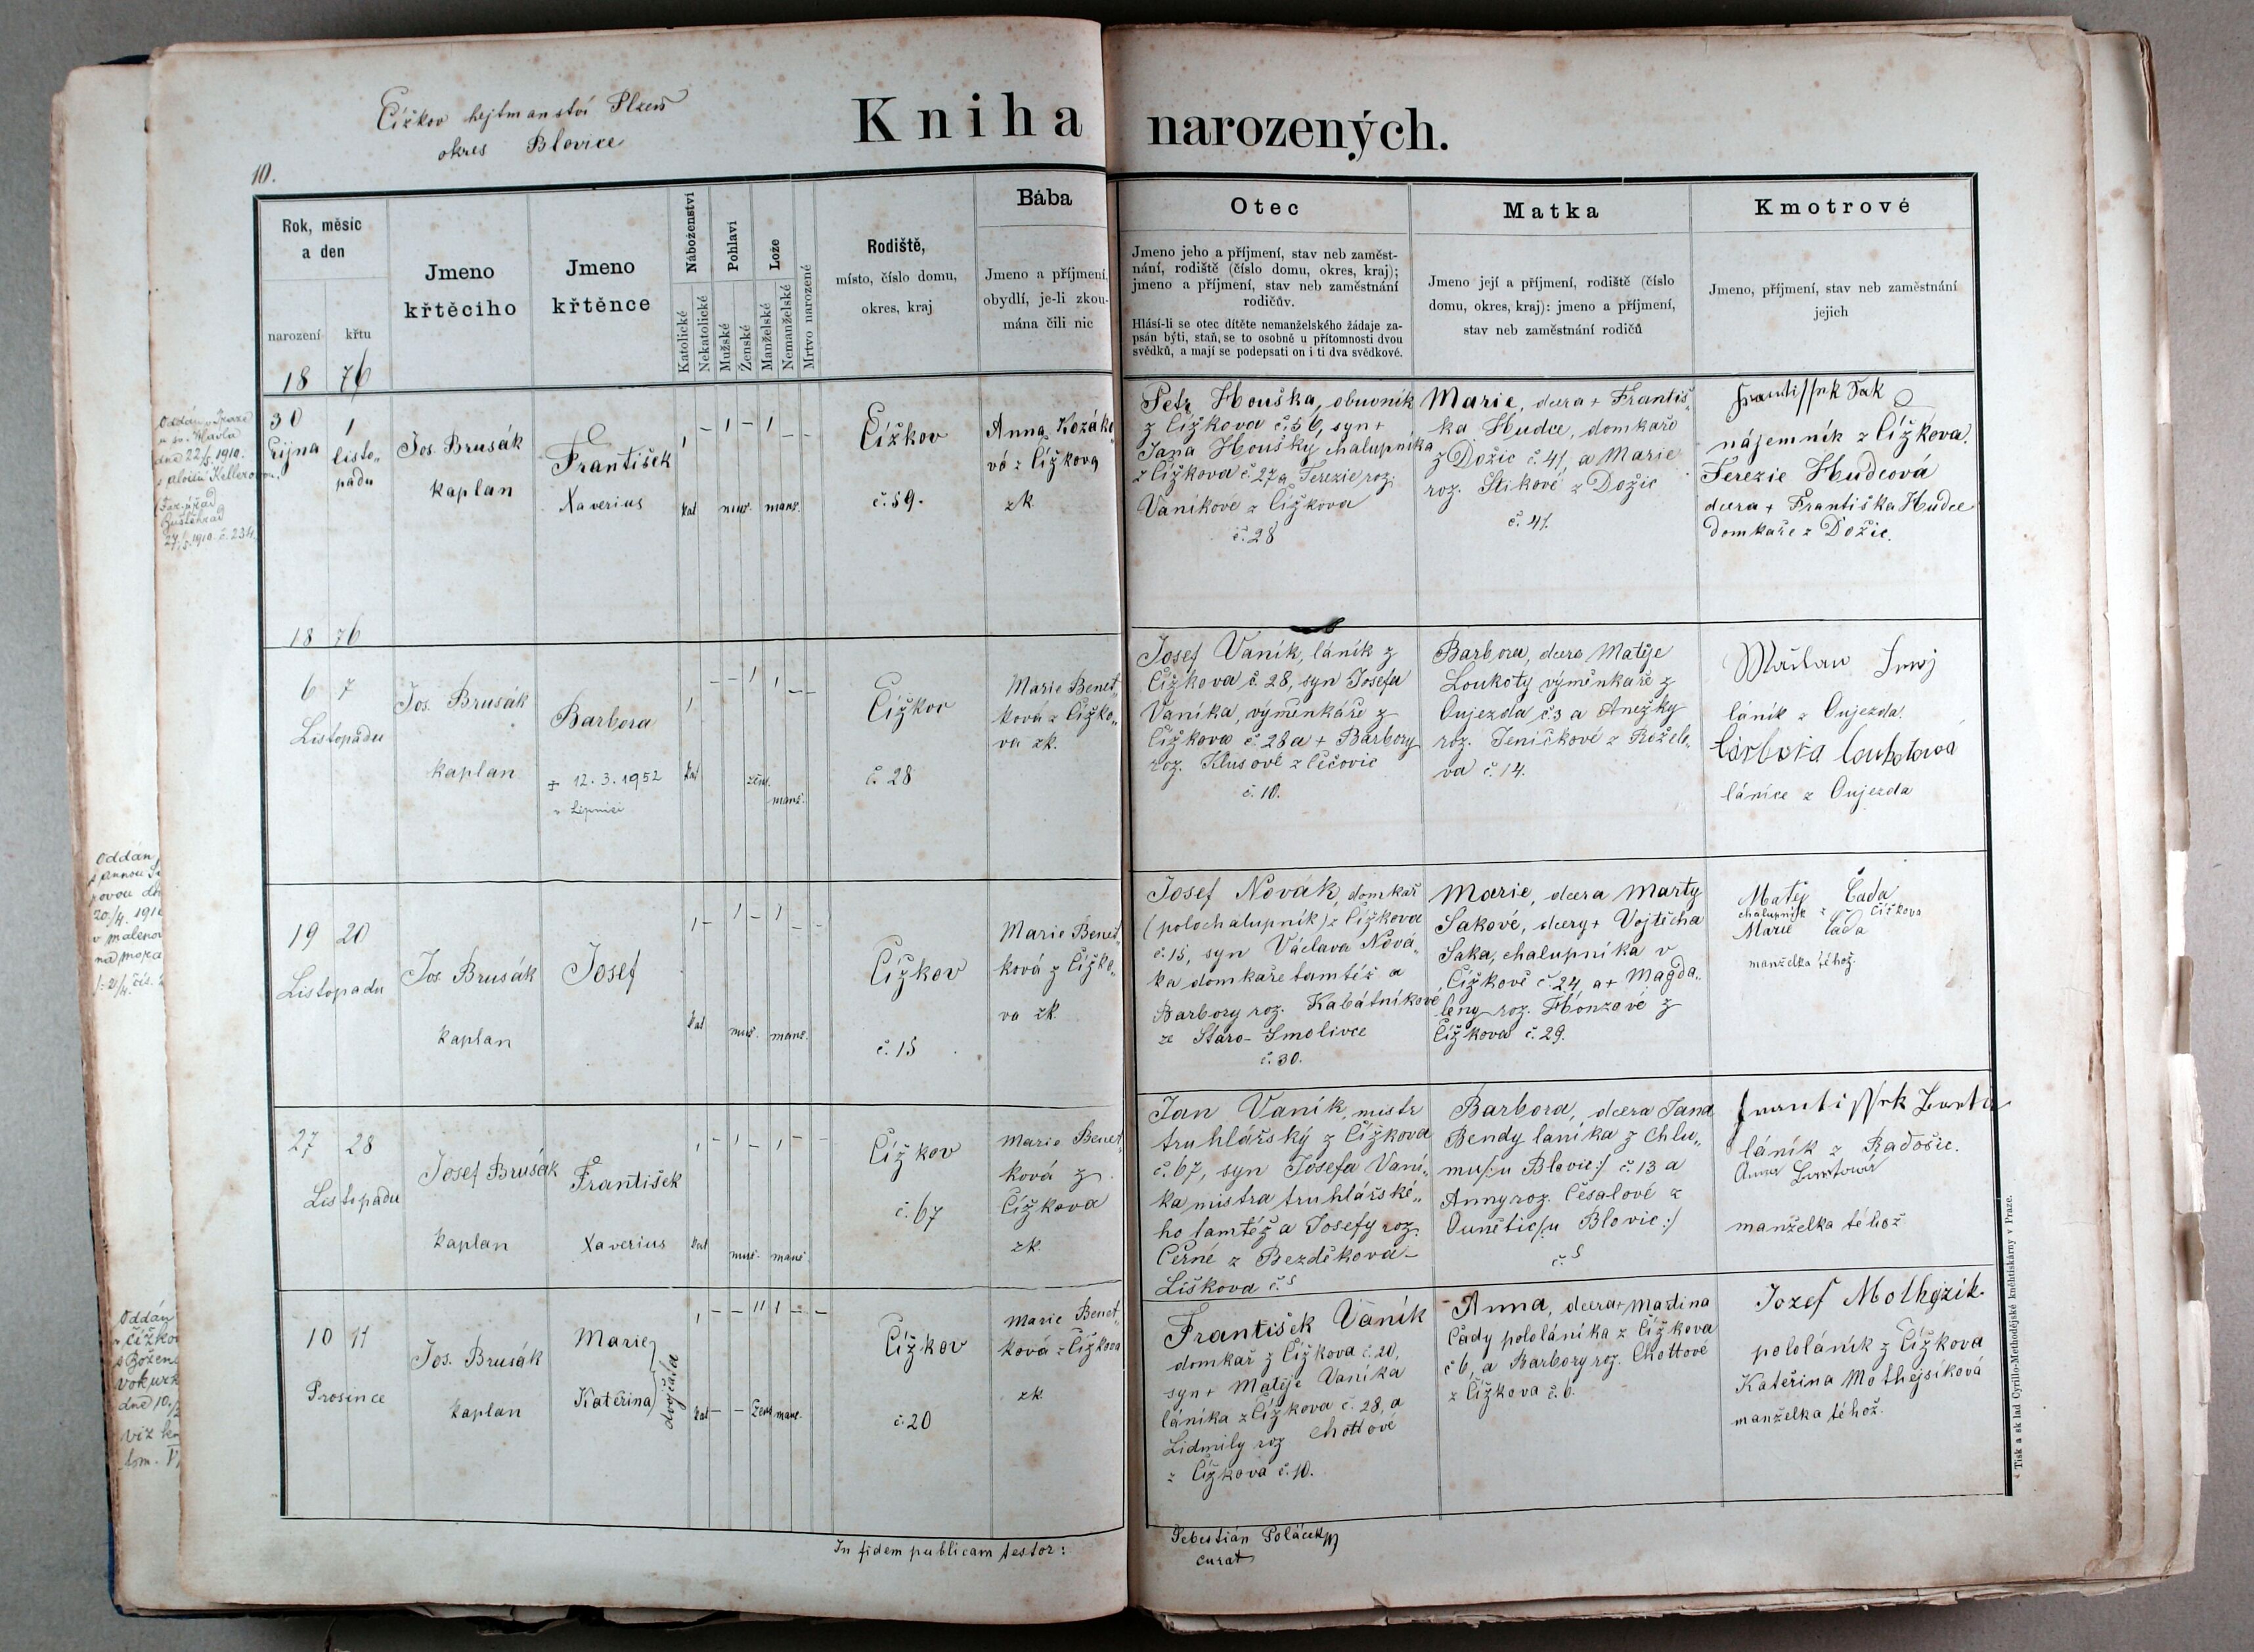 Čížkov hejtmanství Plzeň
okres Blovice
Kniha narozených.
10.
Rok, měsíc
a den
narození
křtu
Jmeno
křtěcího
Jmeno
křtěnce
Náboženství
Katolické
Nekatolické
Pohlaví
Mužské
Ženské
Lože
Manželské
Nemanželské
Mrtvo narozené
Rodiště,
místo, číslo domu,
okres, kraj
Bába
Jmeno a příjmení,
obydlí, je-li zkou-
mána čili nic
Otec
Jmeno jeho a příjmení, stav neb zaměst-
nání, rodiště (číslo domu, okres, kraj);
jmeno a příjmení, stav neb zaměstnání
rodičův.
Hlásí-li se otec dítěte nemanželského žádaje za-
psán býti, staň, se to osobně u přítomnosti dvou
svědků, a mají se podepsati on i ti dva svědkové.
Matka
Jmeno její a příjmení, rodiště (číslo
domu, okres, kraj): jmeno a příjmení,
stav neb zaměstnání rodičů
Kmotrové
Jmeno, příjmení, stav neb zaměstnání
jejich
18 76
30
října
1
listo„
padu
Jos. Brusák
kaplan
František
Xaverius
1 – 1 – 1 – –
kat. muž. manž.
Čížkov
č. 59.
Anna Kozáko
vá z Čížkova
zk.
Petr Houška, obuvník
z Čížkova č. 56, syn +
Jana Houšky chalupníka
z Čížkova č. 27 a Terezie roz.
Vaníkové z Čížkova
č. 28
Marie, dcera + Františ„
ka Hudce, domkaře
z Dožic č. 41, a Marie
roz. Sikové z Dožic
č. 41.
Frantissek Sak
nájemník z Čížkova.
Terezie Hudcová
dcera + Františka Hudce
domkaře z Dožic.
dne 22/5. 1910.
s Aloisií Kellerovou.
27/5. 1910. č. 234.
18 76
6 7
Listopadu
Jos. Brusák
kaplan
Barbora
+ 12. 3. 1952
v Lipnici
1 – – 1 1 – –
kat. žens. manž.
Čížkov
č. 28
Marie Benet„
ková z Čížko„
va zk.
Josef Vaník, láník z
Čížkova č. 28, syn Josefa
Vaníka, výměnkáře z
Čížkova č. 28 a + Barbory
roz. Klusové z Čečovic
č. 10.
Barbora, dcera Matěje
Loukoty výměnkaře z
Oujezda č. 3 a Anežky
roz. Jeníčkové z Rožele„
va č. 14.
láník z Oujezda.
lánice z Oujezda
19 20
Listopadu
Jos. Brusák
kaplan
Josef
1 – 1 – 1 – –
kat. muž. manž.
Čížkov
č. 15
Marie Benet„
ková z Čížko„
va zk.
Josef Novák, domkař
(polochalupník) z Čížkova
č. 15, syn Václava Nová„
ka domkaře tamtéž a
Barbory roz. Kabátníkové
ze Staro-Smolivce
č. 30.
Marie, dcera Marty
Sakové, dcery + Vojtěcha
Saka, chalupníka v
Čížkově č. 24, a + Magda„
leny roz. Honzové z
Čížkova č. 29.
Matěj Čada
chalupník z Čížkova
Marie Čada
manželka téhož.
27 28
Listopadu
Josef Brusák
kaplan
František
Xaverius
1 – 1 – 1 – –
kat. muž. manž.
Čížkov
č. 67
Marie Benet„
ková z
Čížkova
zk.
Jan Vaník, mistr
truhlářský z Čížkova
č. 67, syn Josefa Vaní„
ka mistra truhlářské„
ho tamtéž a Josefy roz.
Černé z Bezděkova-
Líškova č. 5
Barbora, dcera Jana
Bendy láníka z Chlu„
mu /:u Blovic:/ č. 13 a
Anny roz. Česalové z
Ounětic /:u Blovic:/
č. 5
Frantissek Barta
láník z Radošic.
Anna Bartová
manželka téhož
10 11
Prosince
Jos. Brusák
kaplan
Marie
Kateřina
dvojčata
1 – – 11 1 – –
kat. – – žens. manž.
Čížkov
č. 20
Marie Benet„
ková z Čížkova
zk.
František Vaník
domkař z Čížkova č. 20,
syn + Matěje Vaníka
láníka z Čížkova č. 28, a
Lidmily roz. Chottové
z Čížkova č. 10.
Anna, dcera + Martina
Čady pololáníka z Čížkova
č. 6, a Barbory roz. Chottové
z Čížkova č. 6.
Jozef Mothejzik
pololáník z Čížkova
Kateřina Mothejsíková
manželka téhož.
In fidem publicam testor:
Šebestián Polácek
curat
Tisk a sklad Cyrillo-Methodějské knihtiskárny v Praze.